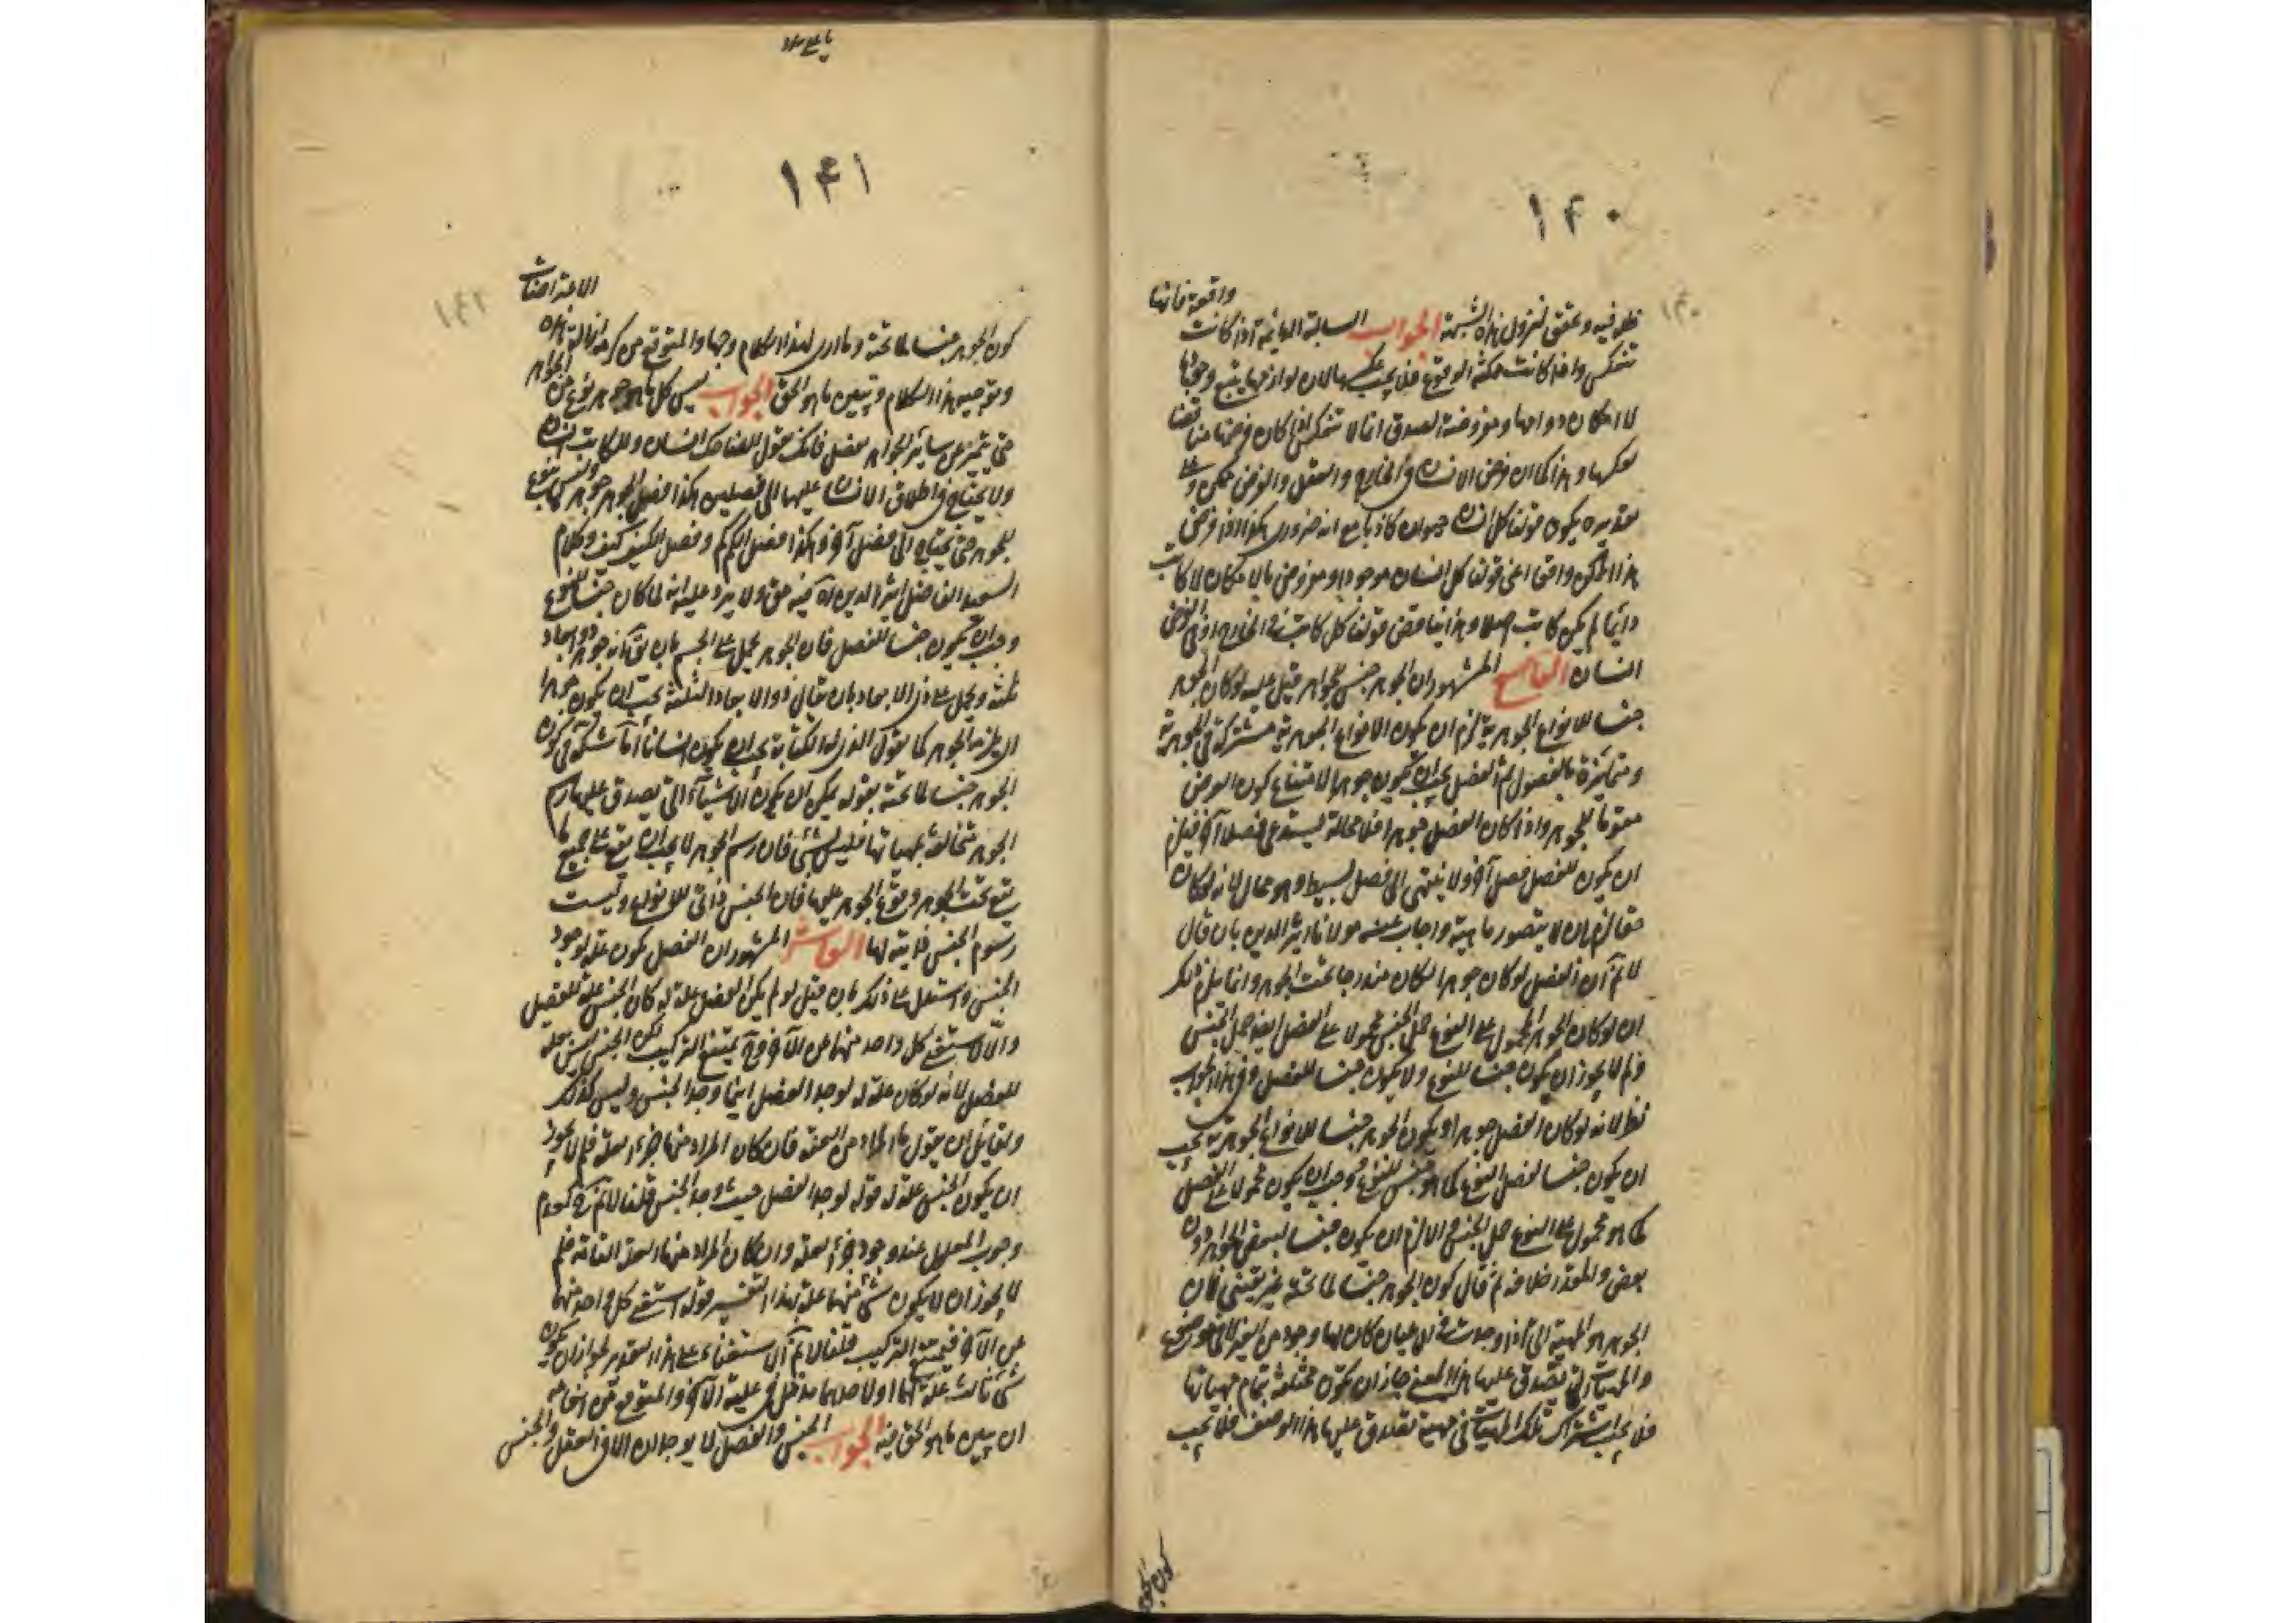 ١٤٠
نظر فيه وتحقق لنزول هذه الشبهة الجواب السالبة الدائمة اذا كانت واقعة فانها
تنعكس واذا كانت ممكنة الوقوع فلا يجب عكسها لان لوازمها يتبع وقوعها
لا امكان دوامها ومفروضة الصدق انما لا تنعكس اذا كان فرضها مناقضا
لعكسها وهذا كما ان فرض الانسان في الخارج والعقل والفرض ممكن وعلى
تقديره يكون قولنا كل انسان حيوان كاذبا مع انه ضروري هكذا اذا فرض
هذا الممكن واقعا اعني قولنا كل انسان موجود او مفروض بالامكان لا كاتب
دائما لم يكن كاتب اصلا وهذا يناقض قولنا كل كاتب في الخارج او في الفرض
انسان التاسع المشهور ان الجوهر جنس للجواهر قيل عليه لو كان الجوهر
جنسا للانواع الجوهرية لزم ان يكون الانواع الجوهرية مشتركة في الجوهرية
ومتمايزة بالفصول ثم الفصل يجب ان يكون جوهرا لامتناع كون العرض
مقوما للجوهر واذا كان الفصل جوهرا فلا محالة يستدعي فصلا آخر فيلزم
ان يكون للفصل فصل آخر ولا ينتهي الى فصل بسيط وهو محال لانه لو كان
حقا لزم ان لا يتصور ماهية واجاب عنه مولانا اثير الدين بان قال
لا نم ان الفصل لو كان جوهرا لكان مندرجا تحت الجوهر وانما يلزم ذلك
ان لو كان الجوهر المحمول على النوع حمل الجنس محمولا على الفصل ايضا حمل الجنس
ولم لا يجوز ان يكون جنسا للنوع ولا يكون جنسا للفصل وفي هذا الجواب
نظر لانه لو كان الفصل جوهرا ويكون الجوهر جنسا للانواع الجوهرية يجب
ان يكون جنسا لفصل النوع كما هو جنس للنوع ووجب ان يكون محمولا على الفصل
كما هو محمول على النوع حمل الجنس والا لزم ان يكون جنسا لبعض الجواهر دون
بعض والمقدر خلافه ثم قال كون الجوهر جنسا لما تحته غير يقيني فان
الجوهر هو المهية التي اذا وجدت في الاعيان كان لها وجود من الغير لا في موضوع
والمهيات التي تصدق عليها هذا المعنى جاز ان تكون مختلفة بتمام مهياتها
فلا يجب اشتراك تلك المهيات في مهية تصدق عليها هذا الوصف فلا يجب
كون الجوهر
١٤١
كون الجوهر جنسا لما تحته وما ادرى لهذا الكلام وجها والمتوقع من كرمه ازالة هذه الاعتراضات
وتوجيه هذا الكلام وتبيين ما هو الحق الجواب ليس كل ما هو جوهر نوع من الجواهر
حتى يتميز من سائر الجواهر بفصل فانك تقول للضاحك انسان وللكاتب انسان
ولا يحتاج في اطلاق الانسان عليهما الى فصلين هكذا فصل الجوهر جوهر وليس بنوع
للجوهر حتى يحتاج الى فصل آخر وهكذا فصل الكم كم وفصل الكيف كيف وكلام
السعيد الفاضل اثير الدين فيه حق ولا يرد عليه انه لما كان جنسا للنوع
وجب ان يكون جنسا للفصل فان الجوهر يحمل على الجسم بان يقال انه جوهر ذو ابعاد
ثلثة ويحمل على ذي الابعاد بان يقال ذو الابعاد الثلثة يجب ان يكون جوهرا
اي يلزمه الجوهر كما تقول الذي له الكتابة يجب ان يكون انسانا اما شكه في كون
الجوهر جنسا لما تحته بقوله يمكن ان يكون الاشياء التي يصدق عليها رسم
الجوهر متخالفة بمهياتها فليس بشئ فان رسم الجوهر لا يجب ان يقع على جميع ما
يقع تحت الجوهر وقوع الجوهر عليها فان الجنس ذاتي للانواع وليست
رسوم الجنس ذاتية لها العاشر المشهور ان الفصل يكون علة لوجود
الجنس واستدل على ذلك بان قيل لو لم يكن الفصل علة له كان الجنس علة للفصل
والا لاستغنى كل واحد منهما عن الآخر فح يمتنع التركيب لكن الجنس ليس بعلة
للفصل لانه لو كان علة له لوجد الفصل اينما وجد الجنس وليس كذلك
ولقائل ان يقول ما المراد من العلة فان كان المراد منها جزء العلة فلم لا يجوز
ان يكون الجنس علة له قوله لوجد الفصل حيث وجد الجنس قلنا لا نم لعدم
وجوب المعلول عند وجود جزء العلة وان كان المراد منها العلة التامة فلم
لا يجوز ان لا يكون شئ منهما علة بهذا التفسير قوله استغنى كل واحد منهما
عن الآخر فيمتنع التركيب قلنا لا نم الاستغناء على هذا التقدير لجواز ان يكون
شئ ثالث علة لهما او لاحدهما مدخل في علية الآخر والمتوقع من انعامه
ان يبين ما هو الحق فيه الجواب الجنس والفصل لا يوجدان الا في العقل والجنس